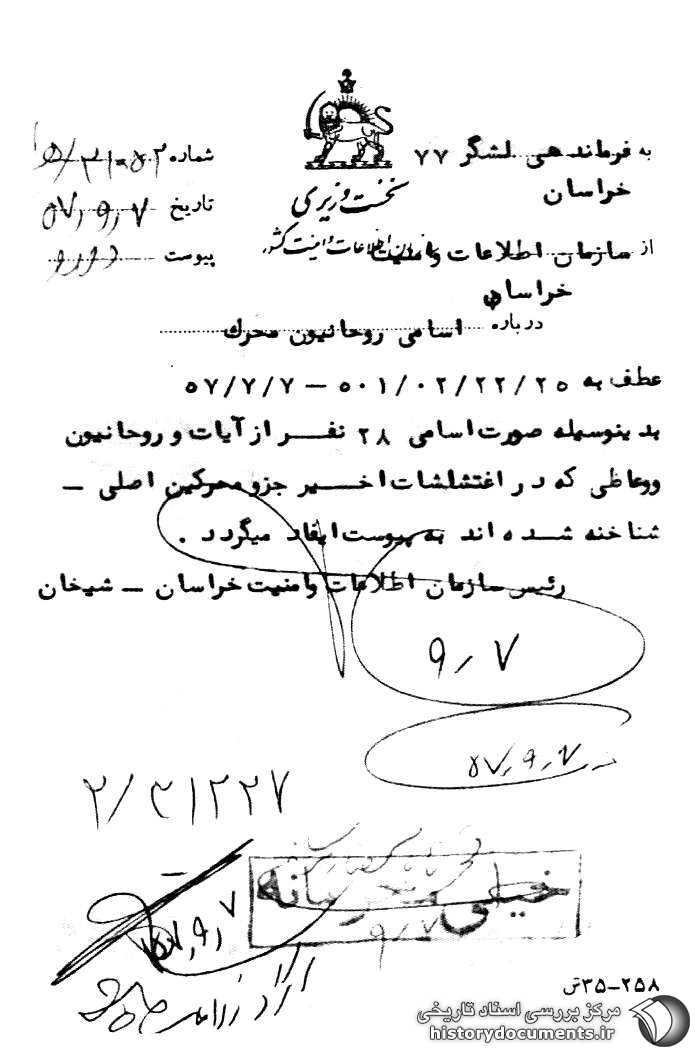 به فرماندهی لشگر ۷۷
خراسان
نخست وزیری
سازمان اطلاعات و امنیت کشور
شماره
تاریخ ۵۷٫۹٫۷
پیوست دارد
از سازمان اطلاعات وامنیت
خراسان
درباره اسامی روحانیون محرك
عطف به ۵۰۱/۰۲/۲۲/۲۵ – ۵۷/۷/۷
بدینوسیله صورت اسامی ۲۸ نفر از آیات و روحانیون
ووعاظی که در اغتشلشات اخیر جزو محرکین اصلی –
شناخنه شده اند به پیوست ایفاد میگردد .
رئیس سازمان اطلاعات وامنیت خراسان – شیخان
۹٫۷
۵۷٫۹٫۷
خیلی محرمانه
۹٫۷
۵۷٫۹٫۷
۲۵۸–۳۵ش
مرکز بررسی اسناد تاریخی
historydocuments.ir